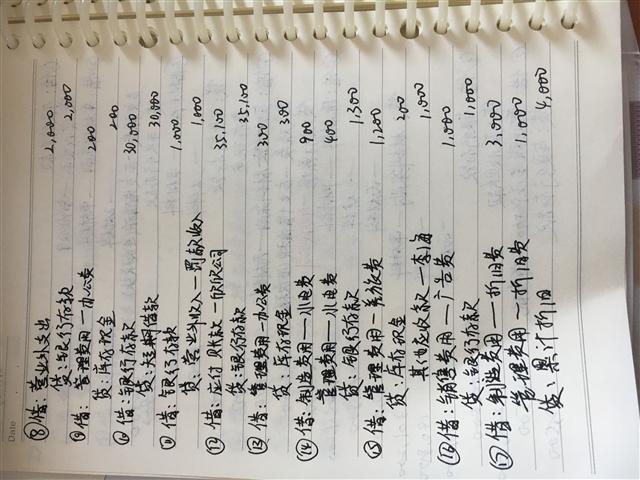 Date
⑧借：营业外支出 2,000
贷：银行存款 2,000
⑨借：管理费用—办公费 200
贷：库存现金 200
⑩借：银行存款 30,000
贷：短期借款 30,000
⑪借：银行存款 1,000
贷：营业外收入—罚款收入 1,000
⑫借：应付账款—欣欣公司 35,100
贷：银行存款 35,100
⑬借：管理费用—办公费 300
贷：库存现金 300
⑭借：制造费用—水电费 900
管理费用—水电费 400
贷：银行存款 1,300
⑮借：管理费用—差旅费 1,200
贷：库存现金 200
其他应收款—李海 1,000
⑯借：销售费用—广告费 1,000
贷：银行存款 1,000
⑰借：制造费用—折旧费 3,000
管理费用—折旧费 1,000
贷：累计折旧 4,000